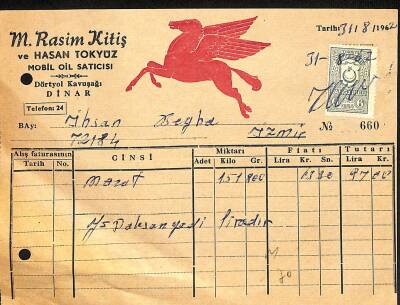 M. Rasim Kitiş
ve HASAN TOKYÜZ
MOBİL OİL SATICISI
Dörtyol Kavuşağı
DİNAR
Telefon: 24
Tarih: 31/8/1962
31-8-62
BAY: İhsan
İzmir
72184
№ 660
Alış faturasının
Tarih No.
CİNSİ
Miktarı
Adet Kilo Gr.
Fiatı
Lira Kr. Sn.
Tutarı
Lira Kr.
Mazot 151 900 97 00
Y/Doksanyedi liradır